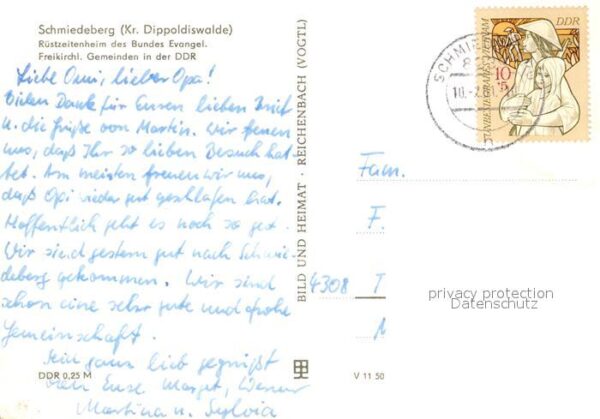 Schmiedeberg (Kr. Dippoldiswalde)
Rüstzeitenheim des Bundes Evangel.
Freikirchl. Gemeinden in der DDR
Liebe Omi, lieber Opa!
Vielen Dank für Euren lieben Brief
u. die Grüße von Martin. Wir freuen
uns, daß Ihr so lieben Besuch hat-
tet. Am meisten freuen wir uns,
daß Opi wieder gut geschlafen hat.
Hoffentlich geht es noch so gut.
Wir sind gestern gut nach Schmie-
deberg gekommen. Wir sind
schon eine sehr gute und frohe
Gemeinschaft.
Seid ganz lieb gegrüßt
von Eure Margot, Werner
Martina u. Sylvia
DDR 0,25 M
BILD UND HEIMAT · REICHENBACH (VOGTL)
V 11 50
DDR
10
+5
UNBESIEGBARES VIETNAM
Fam.
F.
4308 T
privacy protection
Datenschutz